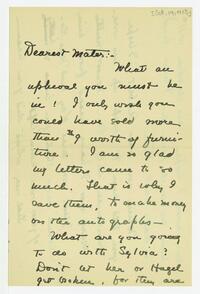 Dearest Mater:-
What an
upheval you must be
in! I only wish you
could have sold more
than $ worth of furni-
ture. I am so glad
my letters came to so
much. That is why I
save them, to make money
on the autographs—
What are you going
to do with Sylvia?
Don't let her or Hazel
get broken, for they are